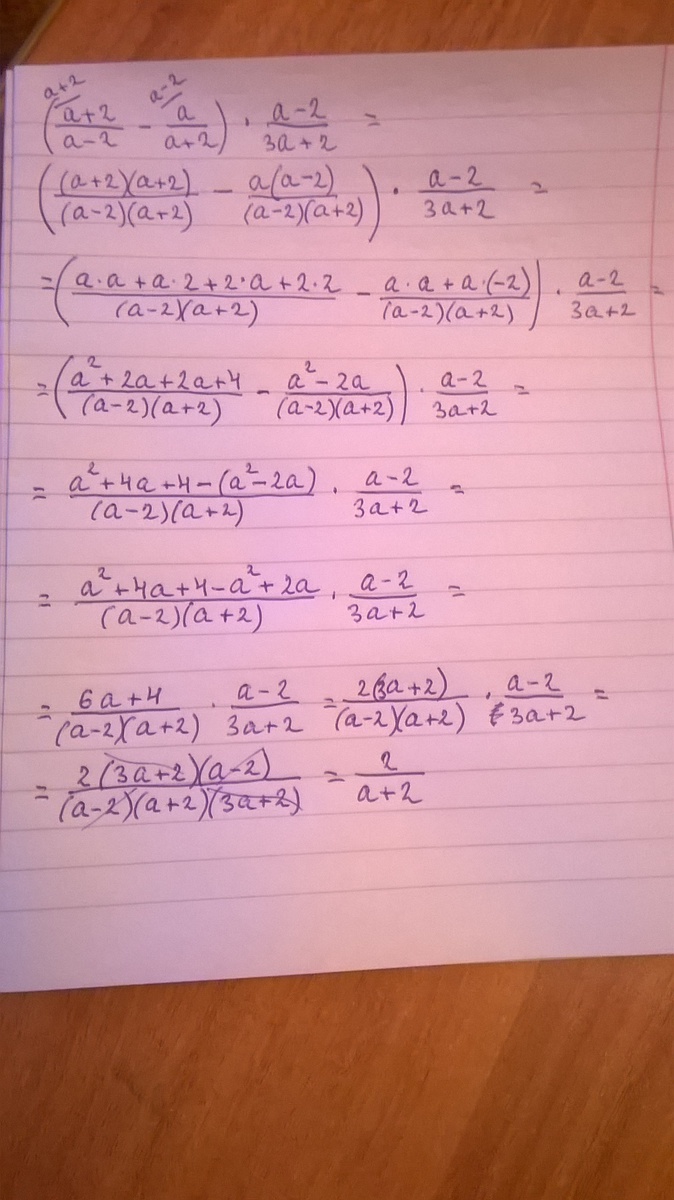 a+2 a-2
((a+2)/(a-2) - a/(a+2)) · (a-2)/(3a+2) =
((a+2)(a+2)/(a-2)(a+2) - a(a-2)/(a-2)(a+2)) · (a-2)/(3a+2) =
= ((a·a+a·2+2·a+2·2)/(a-2)(a+2) - (a·a+a·(-2))/(a-2)(a+2)) · (a-2)/(3a+2) =
= ((a²+2a+2a+4)/(a-2)(a+2) - (a²-2a)/(a-2)(a+2)) · (a-2)/(3a+2) =
= (a²+4a+4-(a²-2a))/(a-2)(a+2) · (a-2)/(3a+2) =
= (a²+4a+4-a²+2a)/(a-2)(a+2) · (a-2)/(3a+2) =
= (6a+4)/(a-2)(a+2) · (a-2)/(3a+2) = 2(3a+2)/(a-2)(a+2) · (a-2)/(3a+2) =
= 2(3a+2)(a-2)/(a-2)(a+2)(3a+2) = 2/(a+2)